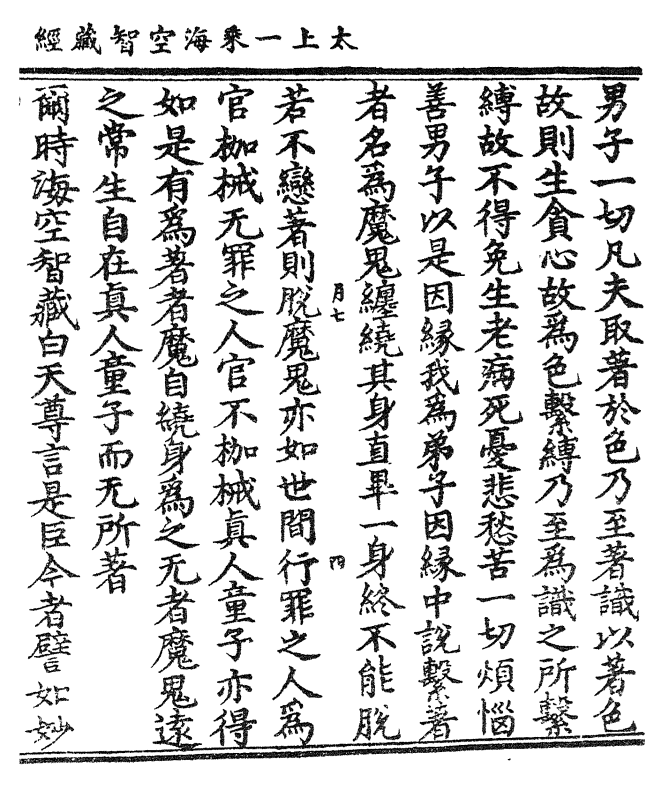 太上一乘海空智藏經
男子一切凡夫取著於色乃至著識以著色
故則生貪心故為色繫縛乃至為識之所繫
縛故不得免生老病死憂悲愁苦一切煩惱
善男子以是因緣我為弟子因緣中說繫著
者名為魔鬼纏繞其身直畢一身終不能脫
月七
四
若不戀著則脫魔鬼亦如世間行罪之人為
官枷械无罪之人官不枷械真人童子亦得
如是有為著者魔自繞身為之无者魔鬼遠
之常生自在真人童子而无所著
爾時海空智藏白天尊言是臣今者譬如妙